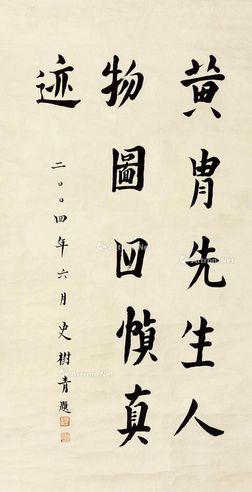 黄胄先生人
物圖四幀真
迹
二〇〇四年六月史樹青題